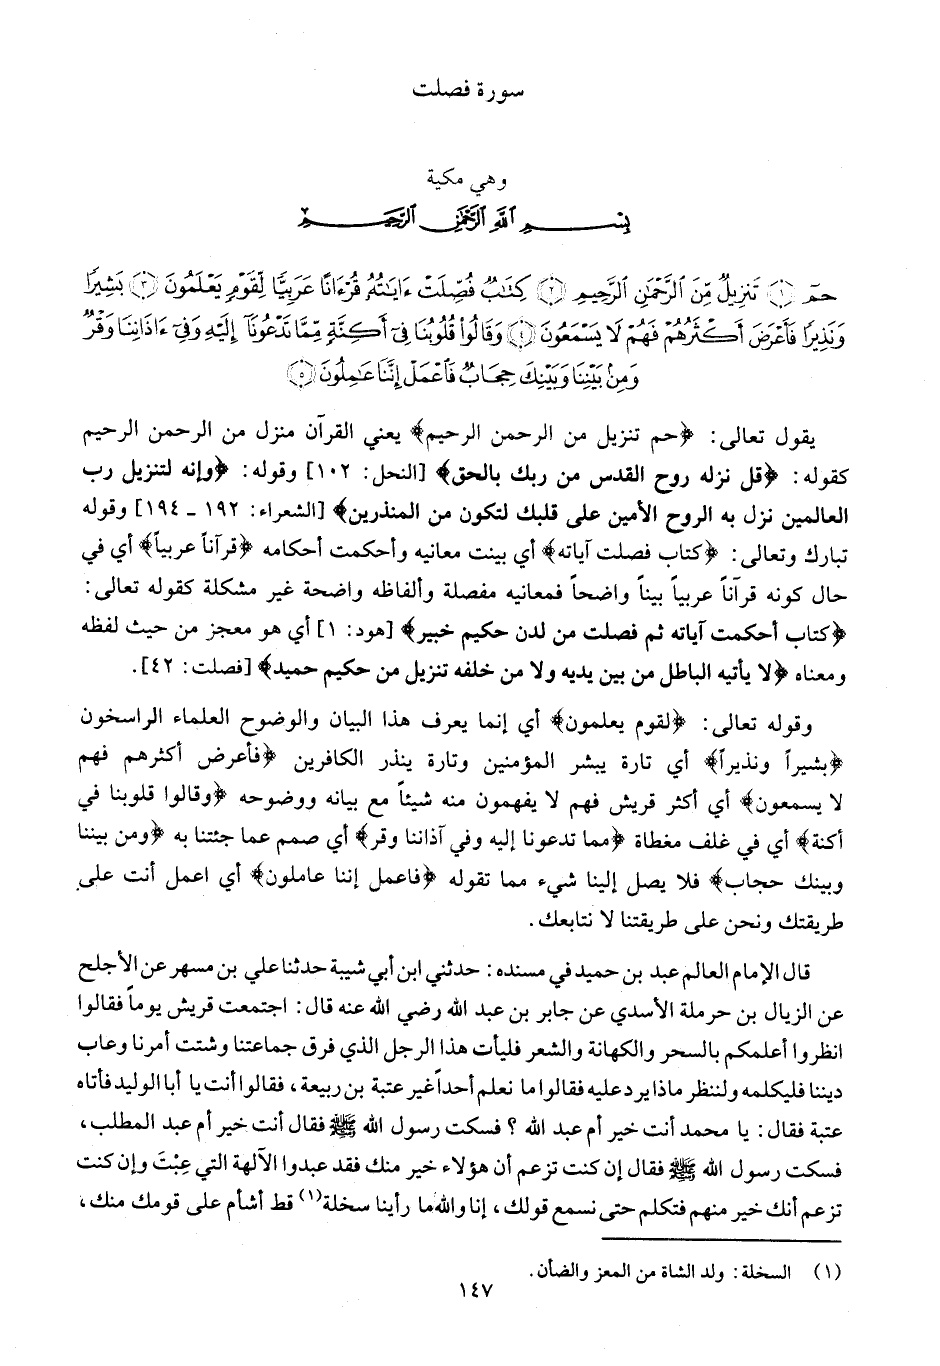 سورة فصلت
وهي مكية
بِسْمِ اللَّهِ الرَّحْمَٰنِ الرَّحِيمِ
حمٓ ﴿١﴾ تَنزِيلٌ مِّنَ ٱلرَّحْمَٰنِ ٱلرَّحِيمِ ﴿٢﴾ كِتَٰبٌ فُصِّلَتْ ءَايَٰتُهُۥ قُرْءَانًا عَرَبِيًّا لِّقَوْمٍ يَعْلَمُونَ ﴿٣﴾ بَشِيرًا
وَنَذِيرًا فَأَعْرَضَ أَكْثَرُهُمْ فَهُمْ لَا يَسْمَعُونَ ﴿٤﴾ وَقَالُوا۟ قُلُوبُنَا فِىٓ أَكِنَّةٍ مِّمَّا تَدْعُونَآ إِلَيْهِ وَفِىٓ ءَاذَانِنَا وَقْرٌ
وَمِنۢ بَيْنِنَا وَبَيْنِكَ حِجَابٌ فَٱعْمَلْ إِنَّنَا عَٰمِلُونَ ﴿٥﴾
يقول تعالى: ﴿حم تنزيل من الرحمن الرحيم﴾ يعني القرآن منزل من الرحمن الرحيم
كقوله: ﴿قل نزله روح القدس من ربك بالحق﴾ [النحل: ١٠٢] وقوله: ﴿وإنه لتنزيل رب
العالمين نزل به الروح الأمين على قلبك لتكون من المنذرين﴾ [الشعراء: ١٩٢ ـ ١٩٤] وقوله
تبارك وتعالى: ﴿كتاب فصلت آياته﴾ أي بينت معانيه وأحكمت أحكامه ﴿قرآناً عربياً﴾ أي في
حال كونه قرآناً عربياً بيناً واضحاً فمعانيه مفصلة وألفاظه واضحة غير مشكلة كقوله تعالى:
﴿كتاب أحكمت آياته ثم فصلت من لدن حكيم خبير﴾ [هود: ١] أي هو معجز من حيث لفظه
ومعناه ﴿لا يأتيه الباطل من بين يديه ولا من خلفه تنزيل من حكيم حميد﴾ [فصلت: ٤٢].
وقوله تعالى: ﴿لقوم يعلمون﴾ أي إنما يعرف هذا البيان والوضوح العلماء الراسخون
﴿بشيراً ونذيراً﴾ أي تارة يبشر المؤمنين وتارة ينذر الكافرين ﴿فأعرض أكثرهم فهم
لا يسمعون﴾ أي أكثر قريش فهم لا يفهمون منه شيئاً مع بيانه ووضوحه ﴿وقالوا قلوبنا في
أكنة﴾ أي في غلف مغطاة ﴿مما تدعونا إليه وفي آذاننا وقر﴾ أي صمم عما جئتنا به ﴿ومن بيننا
وبينك حجاب﴾ فلا يصل إلينا شيء مما تقوله ﴿فاعمل إننا عاملون﴾ أي اعمل أنت على
طريقتك ونحن على طريقتنا لا نتابعك.
قال الإمام العالم عبد بن حميد في مسنده: حدثني ابن أبي شيبة حدثنا علي بن مسهر عن الأجلح
عن الزيال بن حرملة الأسدي عن جابر بن عبد الله رضي الله عنه قال: اجتمعت قريش يوماً فقالوا
انظروا أعلمكم بالسحر والكهانة والشعر فليأت هذا الرجل الذي فرق جماعتنا وشتت أمرنا وعاب
ديننا فليكلمه ولننظر ماذا يرد عليه فقالوا ما نعلم أحداً غير عتبة بن ربيعة، فقالوا أنت يا أبا الوليد فأتاه
عتبة فقال: يا محمد أنت خير أم عبد الله ؟ فسكت رسول الله ﷺ فقال أنت خير أم عبد المطلب،
فسكت رسول الله ﷺ فقال إن كنت تزعم أن هؤلاء خير منك فقد عبدوا الآلهة التي عِبْتَ وإن كنت
تزعم أنك خير منهم فتكلم حتى نسمع قولك، إنا والله ما رأينا سخلة(١) قط أشأم على قومك منك،
(١) السخلة: ولد الشاة من المعز والضأن.
١٤٧